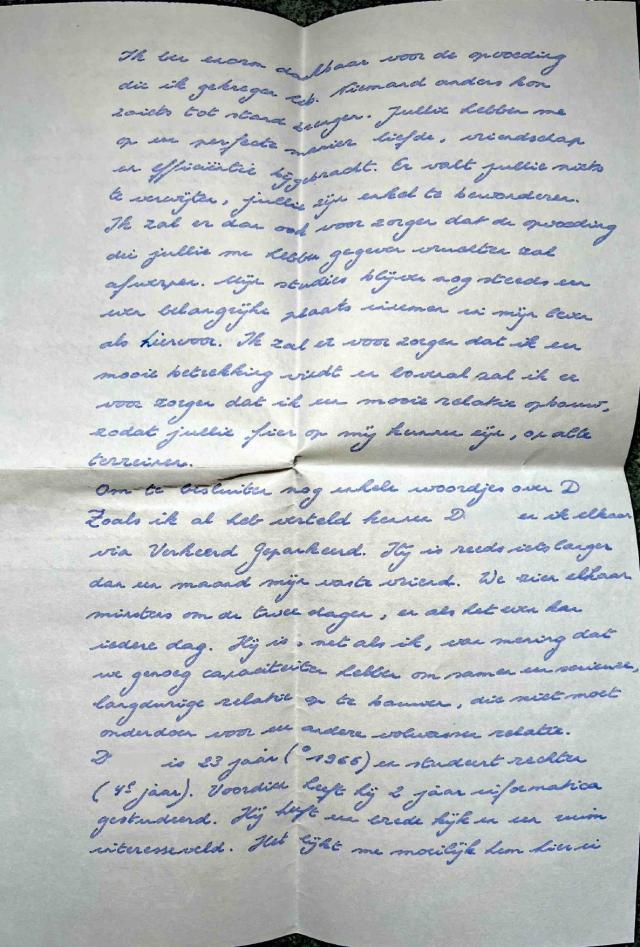 Ik ben enorm dankbaar voor de opvoeding
die ik gekregen heb. Niemand anders kon
zoiets tot stand brengen. Jullie hebben me
op een perfecte manier liefde, vriendschap
en efficiëntie bijgebracht. Er valt jullie niets
te verwijten, jullie zijn enkel te bewonderen.
Ik zal er dan ook voor zorgen dat de opvoeding
die jullie me hebben gegeven vruchten zal
afwerpen. Mijn studies blijven nog steeds een
even belangrijke plaats innemen in mijn leven
als hiervoor. Ik zal er voor zorgen dat ik een
mooie betrekking vindt en bovenal zal ik er
voor zorgen dat ik een mooie relatie opbouw,
zodat jullie fier op mij kunnen zijn, op alle
terreinen.
Om te besluiten nog enkele woordjes over D
Zoals ik al heb verteld kennen D en ik elkaar
via Verkeerd Geparkeerd. Hij is reeds iets langer
dan een maand mijn vaste vriend. We zien elkaar
minstens om de twee dagen, en als het even kan
iedere dag. Hij is, net als ik, van mening dat
we genoeg capaciteiten hebben om samen een serieuze,
langdurige relatie op te bouwen, die niet moet
onderdoen voor een andere volwassen relatie.
D is 23 jaar (°1966) en studeert rechten
(4e jaar). Voordien heeft hij 2 jaar informatica
gestudeerd. Hij heeft een brede kijk en een ruim
interesseveld. Het lijkt me moeilijk hem hier in